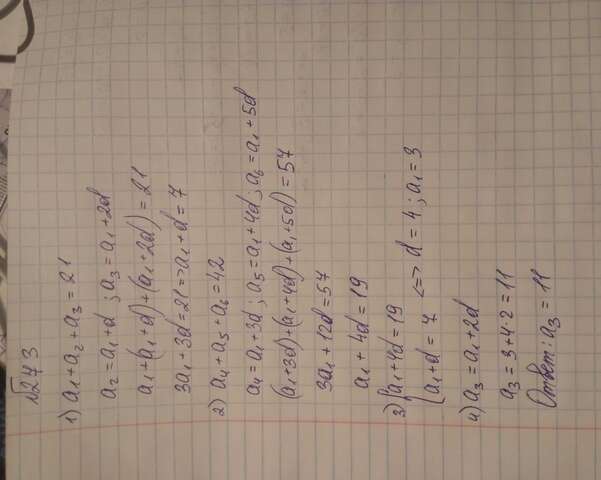 №273
1) a₁+a₂+a₃=21
a₂=a₁+d ; a₃=a₁+2d
a₁+(a₁+d)+(a₁+2d)=21
3a₁+3d=21=>a₁+d=7
2) a₄+a₅+a₆=42
a₄=a₁+3d; a₅=a₁+4d; a₆=a₁+5d
(a₁+3d)+(a₁+4d)+(a₁+5d)=57
3a₁+12d=57
a₁+4d=19
3) {a₁+4d=19
{a₁+d=7 <=> d=4; a₁=3
4) a₃=a₁+2d
a₃=3+4·2=11
Ответ: a₃=11